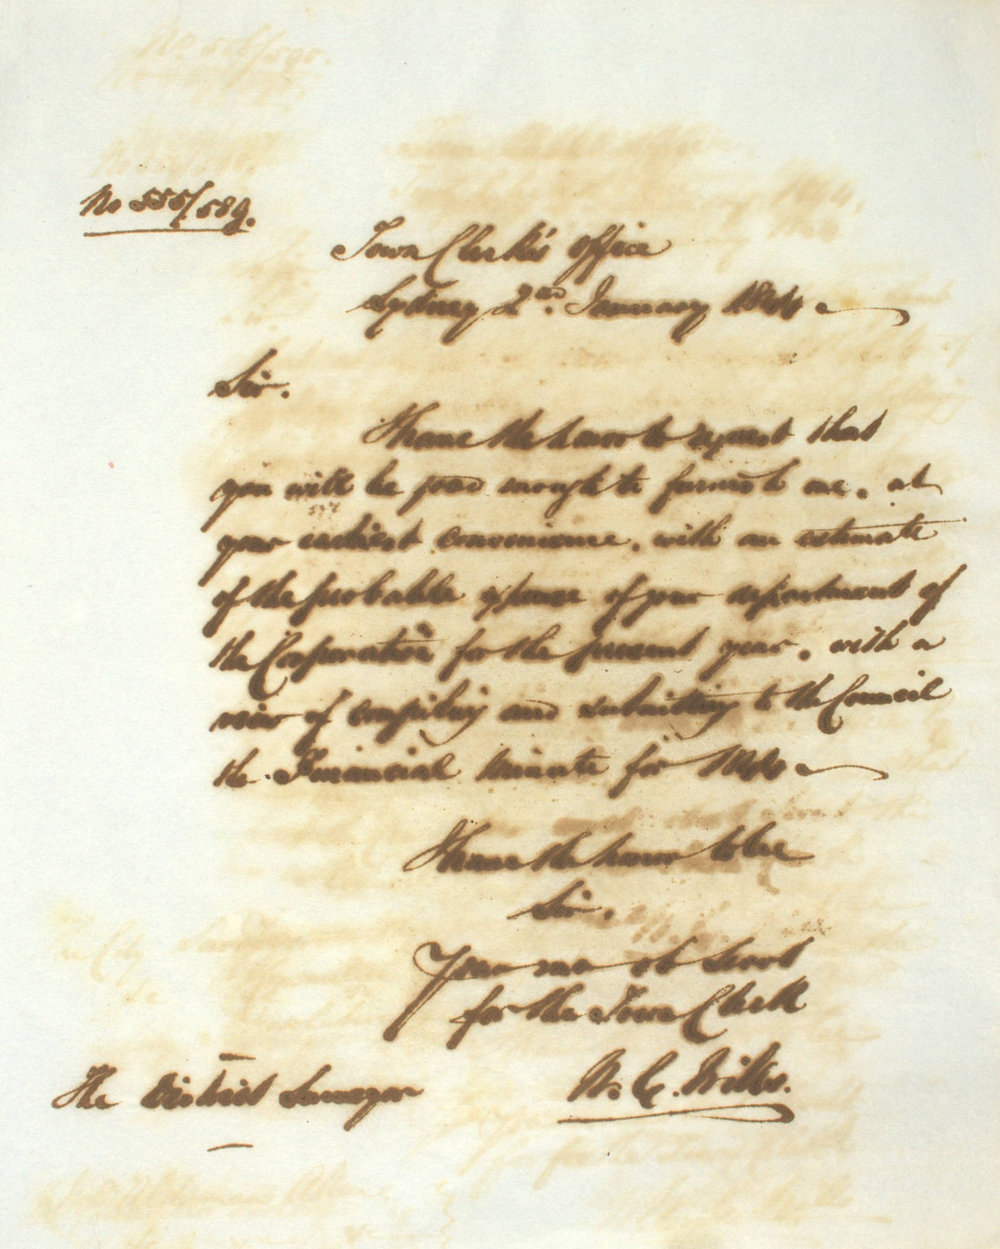 No 555/589.
Town Clerk's Office
Sydney 2nd. January 1844
Sir.
I have the honor to request that
you will be good enough to furnish me, at
your earliest convenience, with an estimate
of the probable expense of your department of
the Corporation for the present year, with a
view of compiling and submitting to the Council
the Financial Minute for 1844
I have the honor to be
Sir.
Your mo ob Servt
for the Town Clerk
The District Surveyor
W. C. Wills.